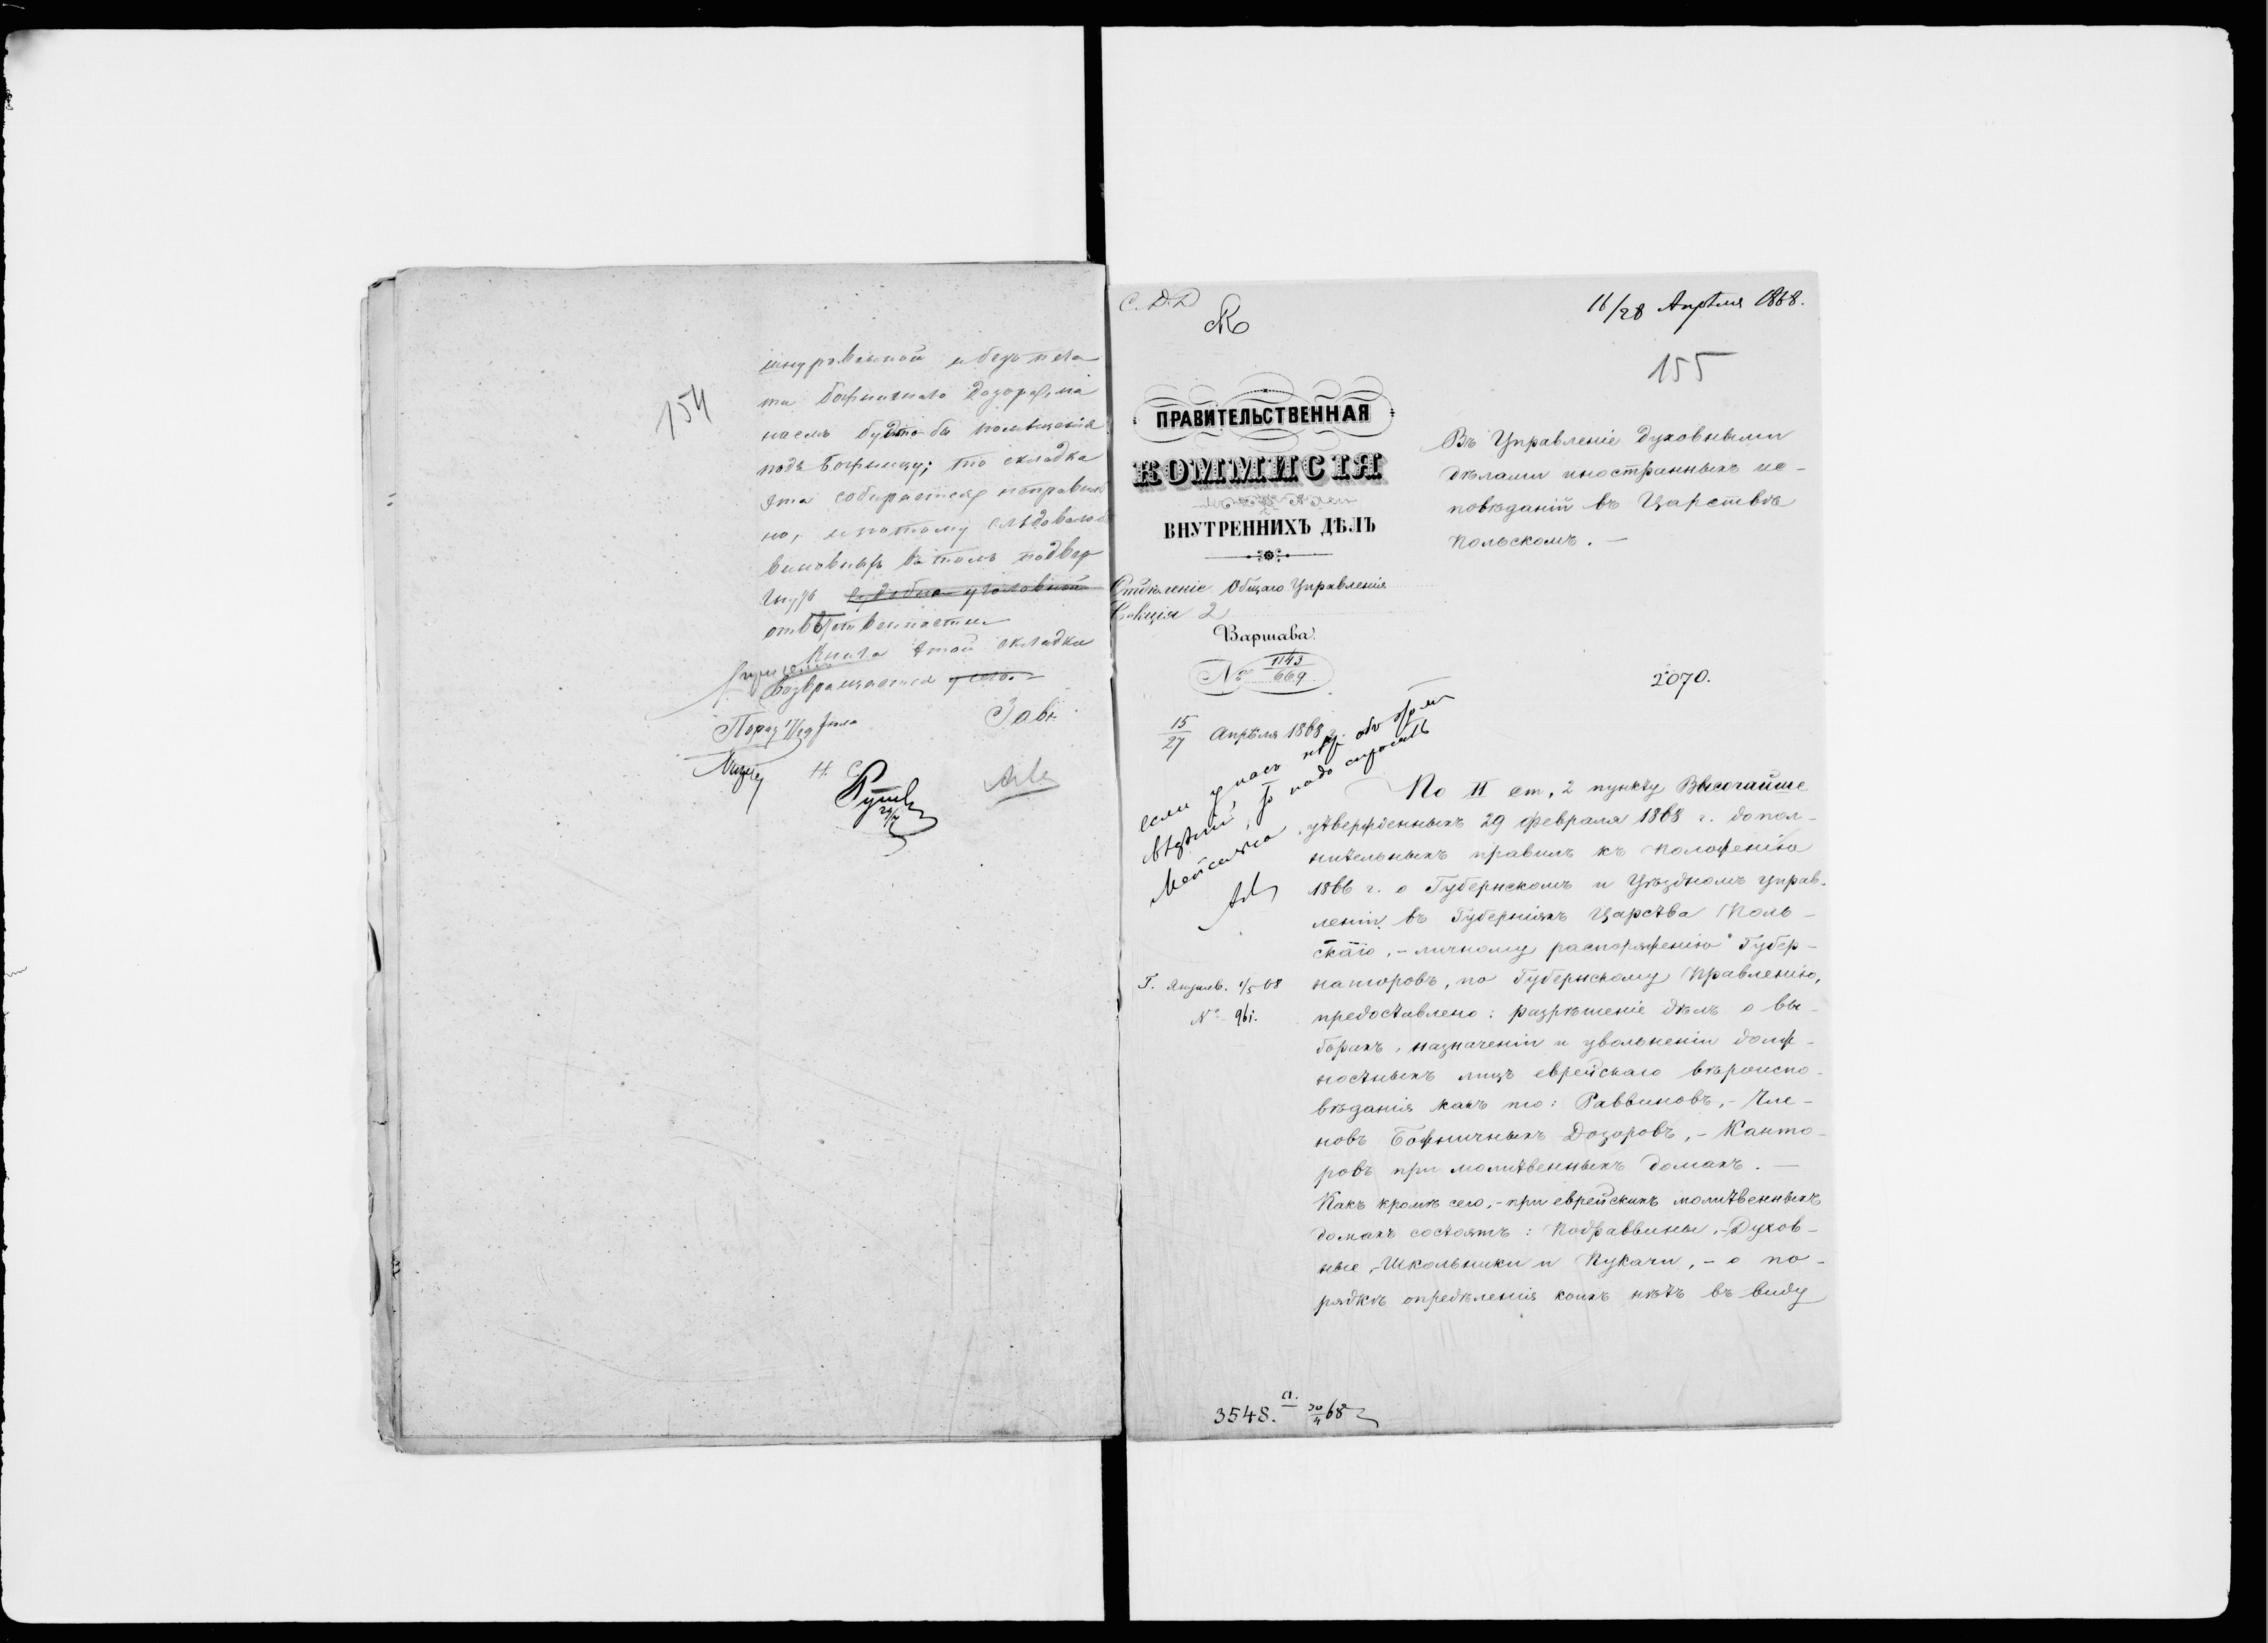 154
шнуровanной и безъ печа
ти Божничнаго Дозора, на
наемъ будто бы помѣщенія
подъ Божницу; то складка
эта собирается неправиль
но, и потому слѣдовало
виновныхъ въ томъ подвер
гнуть
отвѣтственности
Книга этой складки
возвращается
Н. С.
С. Д. Д
16/28 Апрѣля 1868.
155
ПРАВИТЕЛЬСТВЕННАЯ
КОММИСІЯ
ВНУТРЕННИХЪ ДѢЛЪ
Отдѣленіе Общаго Управленія
Секція 2
Варшава.
№ 1143/669
15/27 Апрѣля 1868 г.
Въ Управленіе Духовными
дѣлами иностранныхъ ис-
повѣданій въ Царствѣ
Польскомъ. —
2070.
если у насъ нѣт объ этом
надо спросить
По II ст, 2 пункту Высочайше
утвержденныхъ 29 февраля 1868 г. допол-
нительныхъ правилъ къ положенію
1866 г. о Губернскомъ и Уѣздномъ управ-
леніи въ Губерніяхъ Царства Поль-
скаго, - личному распоряженію Губер-
наторовъ, по Губернскому Правленію,
предоставлено: разрѣшеніе дѣлъ о вы-
борахъ, назначеніи и увольненіи долж-
ностныхъ лицъ еврейскаго вѣроиспо-
вѣданія какъ то: Раввиновъ, - Чле-
новъ Божничныхъ Дозоровъ, - Канто-
ровъ при молитвенныхъ домахъ. —
Какъ кромѣ сего, - при еврейскихъ молитвенныхъ
домахъ состоятъ: Подраввины, - Духов-
ные, - Школьники и Пукачи, - о по-
рядкѣ опредѣленія коихъ нѣтъ въ виду
№ 961.
3548. 30/4 68